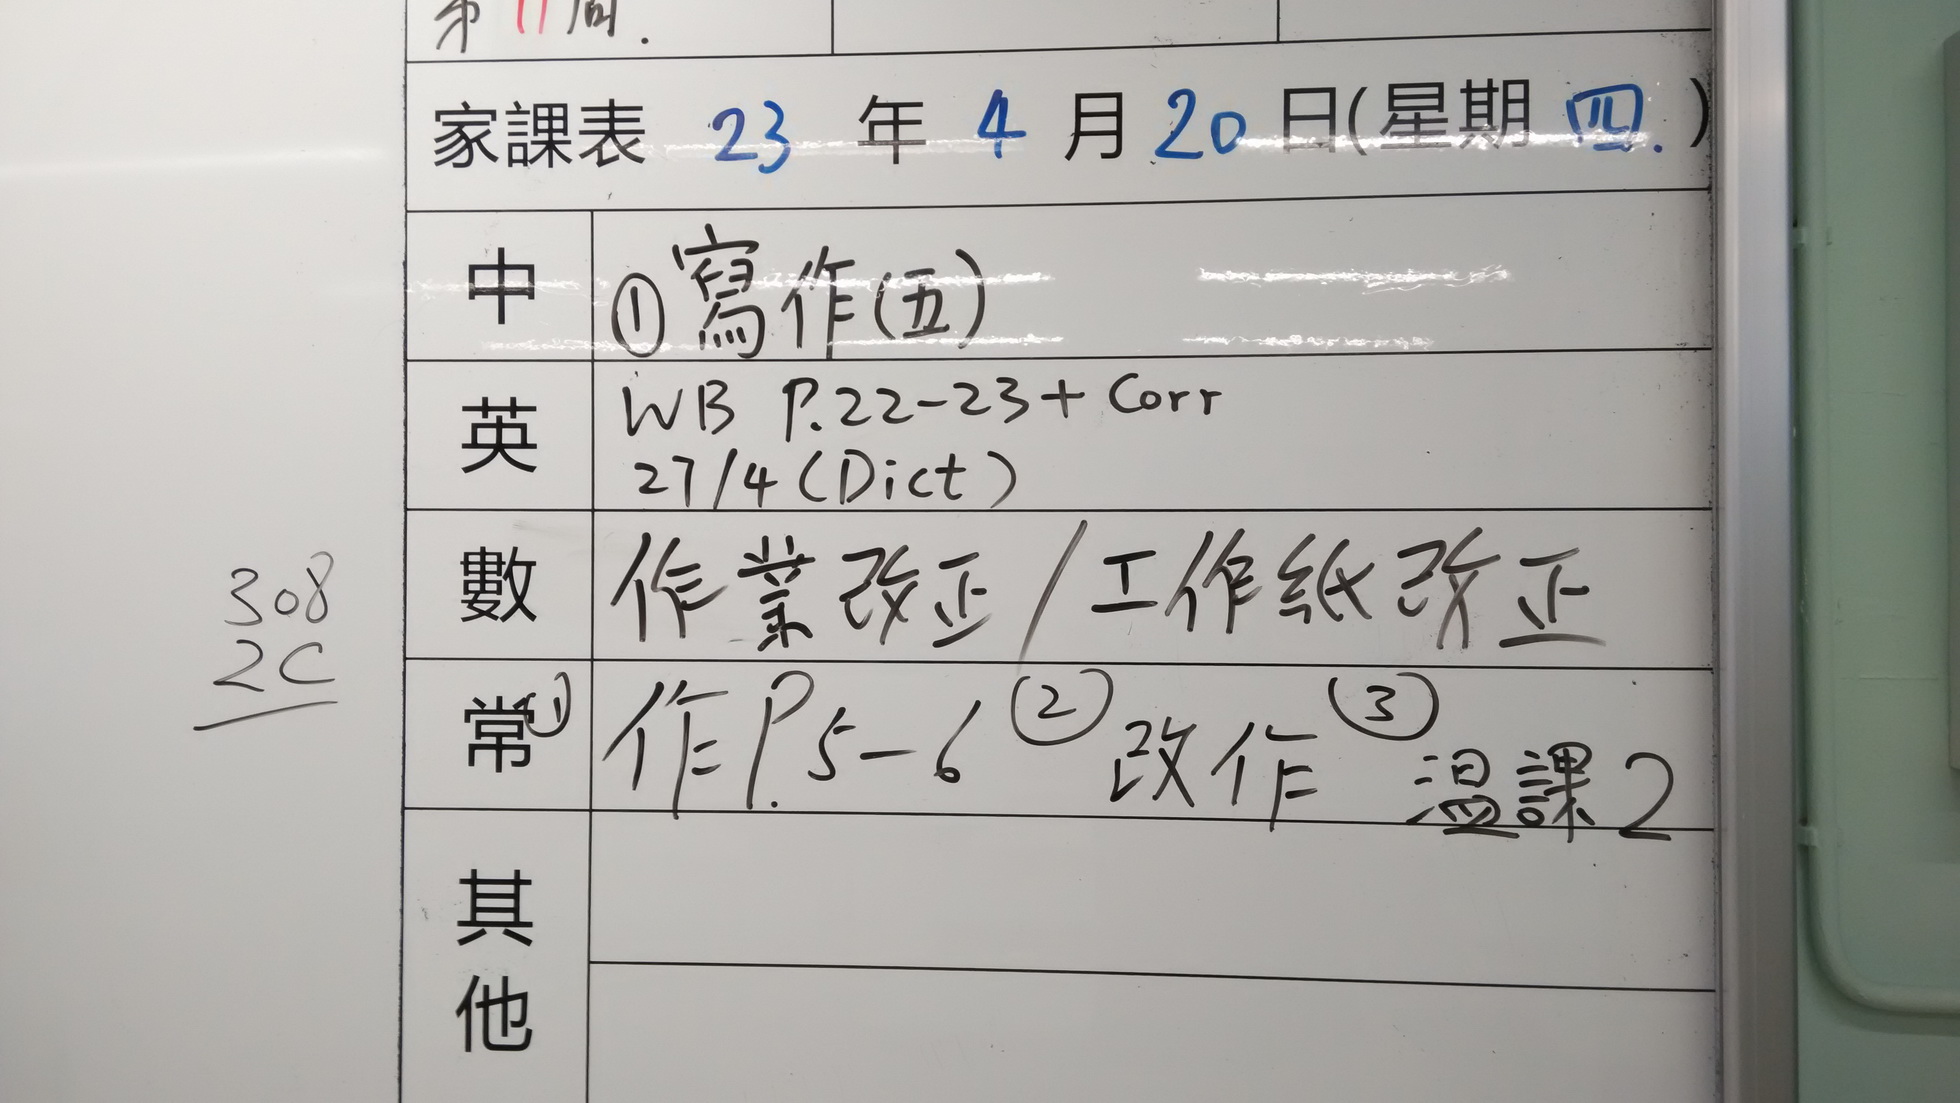 第11周.
家課表 23 年 4 月 20 日(星期 四.)
中 ①寫作(五)
英 WB P.22-23+ Corr
27/4 (Dict)
數 作業改正/工作紙改正
常 ①作P.5-6 ②改作 ③温課2
其他
308
2C